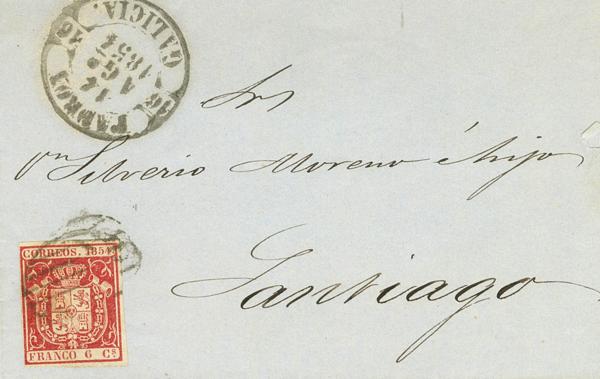 PADRON
14
AGO
1854
GALICIA.
16
Srs
Dn Silverio Moreno é hijo
Santiago
CORREOS. 1854
FRANCO 6 Cs